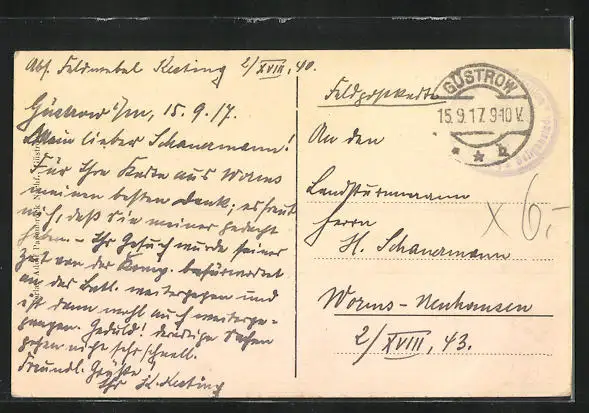 Abs. Feldwebel Kesting 2/XVIII, 40.
Güstrow i/m, 15.9.17.
Mein lieber Schauermann!
Für Ihre Karte aus Worms
meinen besten Dank; es freut
mich, daß Sie meiner gedacht
haben. – Ihr Gesuch wurde seiner
Zeit von der Komp. befürwortet
an das Batl. weitergegeben und
ist dann wohl auch weiterge-
gangen. Geduld! derartige Sachen
gehen nicht sehr schnell.
Freundl. Grüße
Ihr H. Kesting
Feldpostkarte
GÜSTROW
15.9.17. 9-10 V.
* * b
An den
Landsturmmann
Herrn
H. Schauermann
Worms-Neuhausen
2/XVIII, 43.
x 6,-